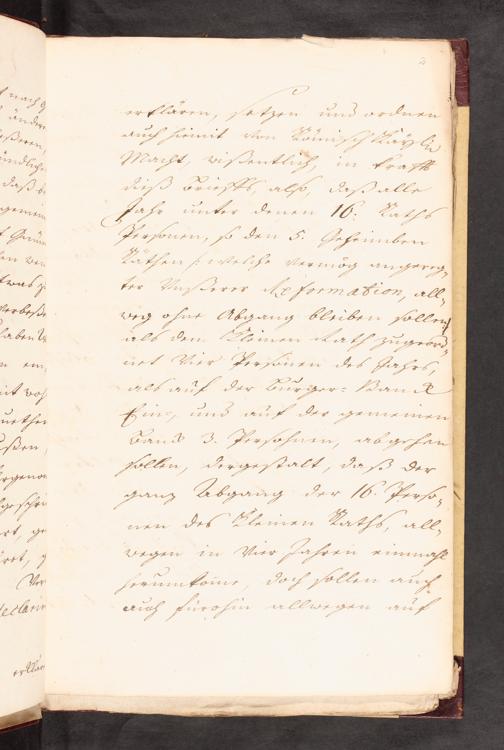 2
erklären, setzen und ordnen
auch hiemit von Römisch Kaÿßl.
Macht, wißentlich, in krafft
dieß Brieffs, also, daß alle
Jahr unter denen 16. Raths
Persohnen, so den 5. Geheimben
Räthen /: welche vermög angereg,,
ter Unßerer Reformation, all,,
weg ohne Abgang bleiben sollen :/
als dem Kleinen Rath zugeord,,
net Vier Persohnen des Jahrs,
als auf der Burger= Banck
Ein, und auf der gemeinen
Banck 3. Persohnen, abgehen
sollen, dergestalt, daß der
gantz Abgang der 16. Perso,,
nen des Kleinen Raths, all,,
wegen in Vier Jahren einmahl
herumkome, doch sollen auch
auch fürohin allwegen auf